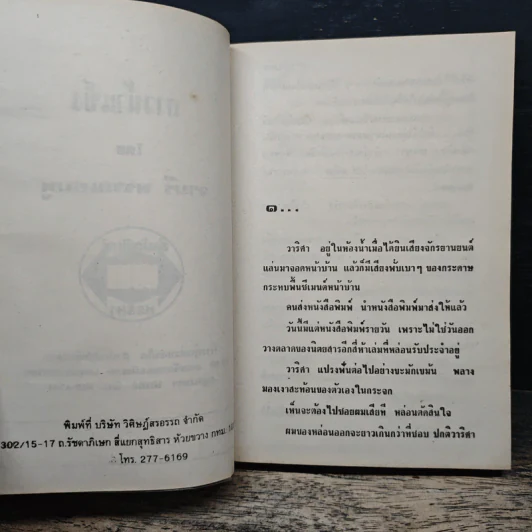 พิมพ์ที่ บริษัท วิคิษฎ์สรอรรถ จำกัด
302/15-17 ถ.รัชดาภิเษก สี่แยกสุทธิสาร ห้วยขวาง กทม.
โทร. 277-6169
๑...
วาริศา อยู่ในห้องน้ำเมื่อได้ยินเสียงจักรยานยนต์
แล่นมาจอดหน้าบ้าน แล้วก็มีเสียงพั่บเบาๆ ของกระดาษ
กระทบพื้นซีเมนต์หน้าบ้าน
คนส่งหนังสือพิมพ์ นำหนังสือพิมพ์มาส่งให้แล้ว
วันนี้มีแต่หนังสือพิมพ์รายวัน เพราะไม่ใช่วันออก
วางตลาดของนิตยสารอีกสี่ห้าเล่มที่หล่อนรับประจำอยู่
วาริศา แปรงฟันต่อไปอย่างขะมักเขม้น พลาง
มองเงาสะท้อนของตัวเองในกระจก
เห็นจะต้องไปซอยผมเสียที หล่อนตัดสินใจ
ผมของหล่อนออกจะยาวเกินกว่าที่ชอบ ปกติวาริศา